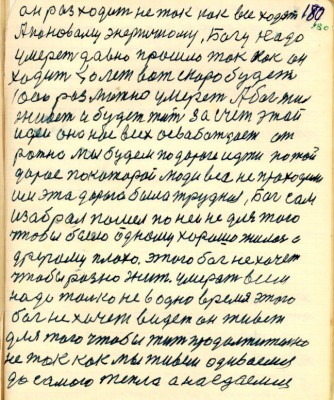 он разходит не так как все ходят 180
Ановалу энергичному, Богу надо 180
умереть давно прошло так как он
ходит лет вот скоро будет
1000 раз можно умереть А бог жил
живет и будет жить за счет этой
идеи она нас всех освабаждает от
мы будем по дороге идти по той
дароге по которой люди все не проходили
им эта дорога была трудная, Бог сам
избрал пошел по ней не для того
чтобы было одному хорошо жилось а
другому плохо. этого бог не хочет
чтобы разно жить. умерать всем
надо только не в одно время этого
бог не хочет видеть он живет
для того чтобы жить продолжительно
не так как мы живем одеваемся
до самого тепла а наедаемся